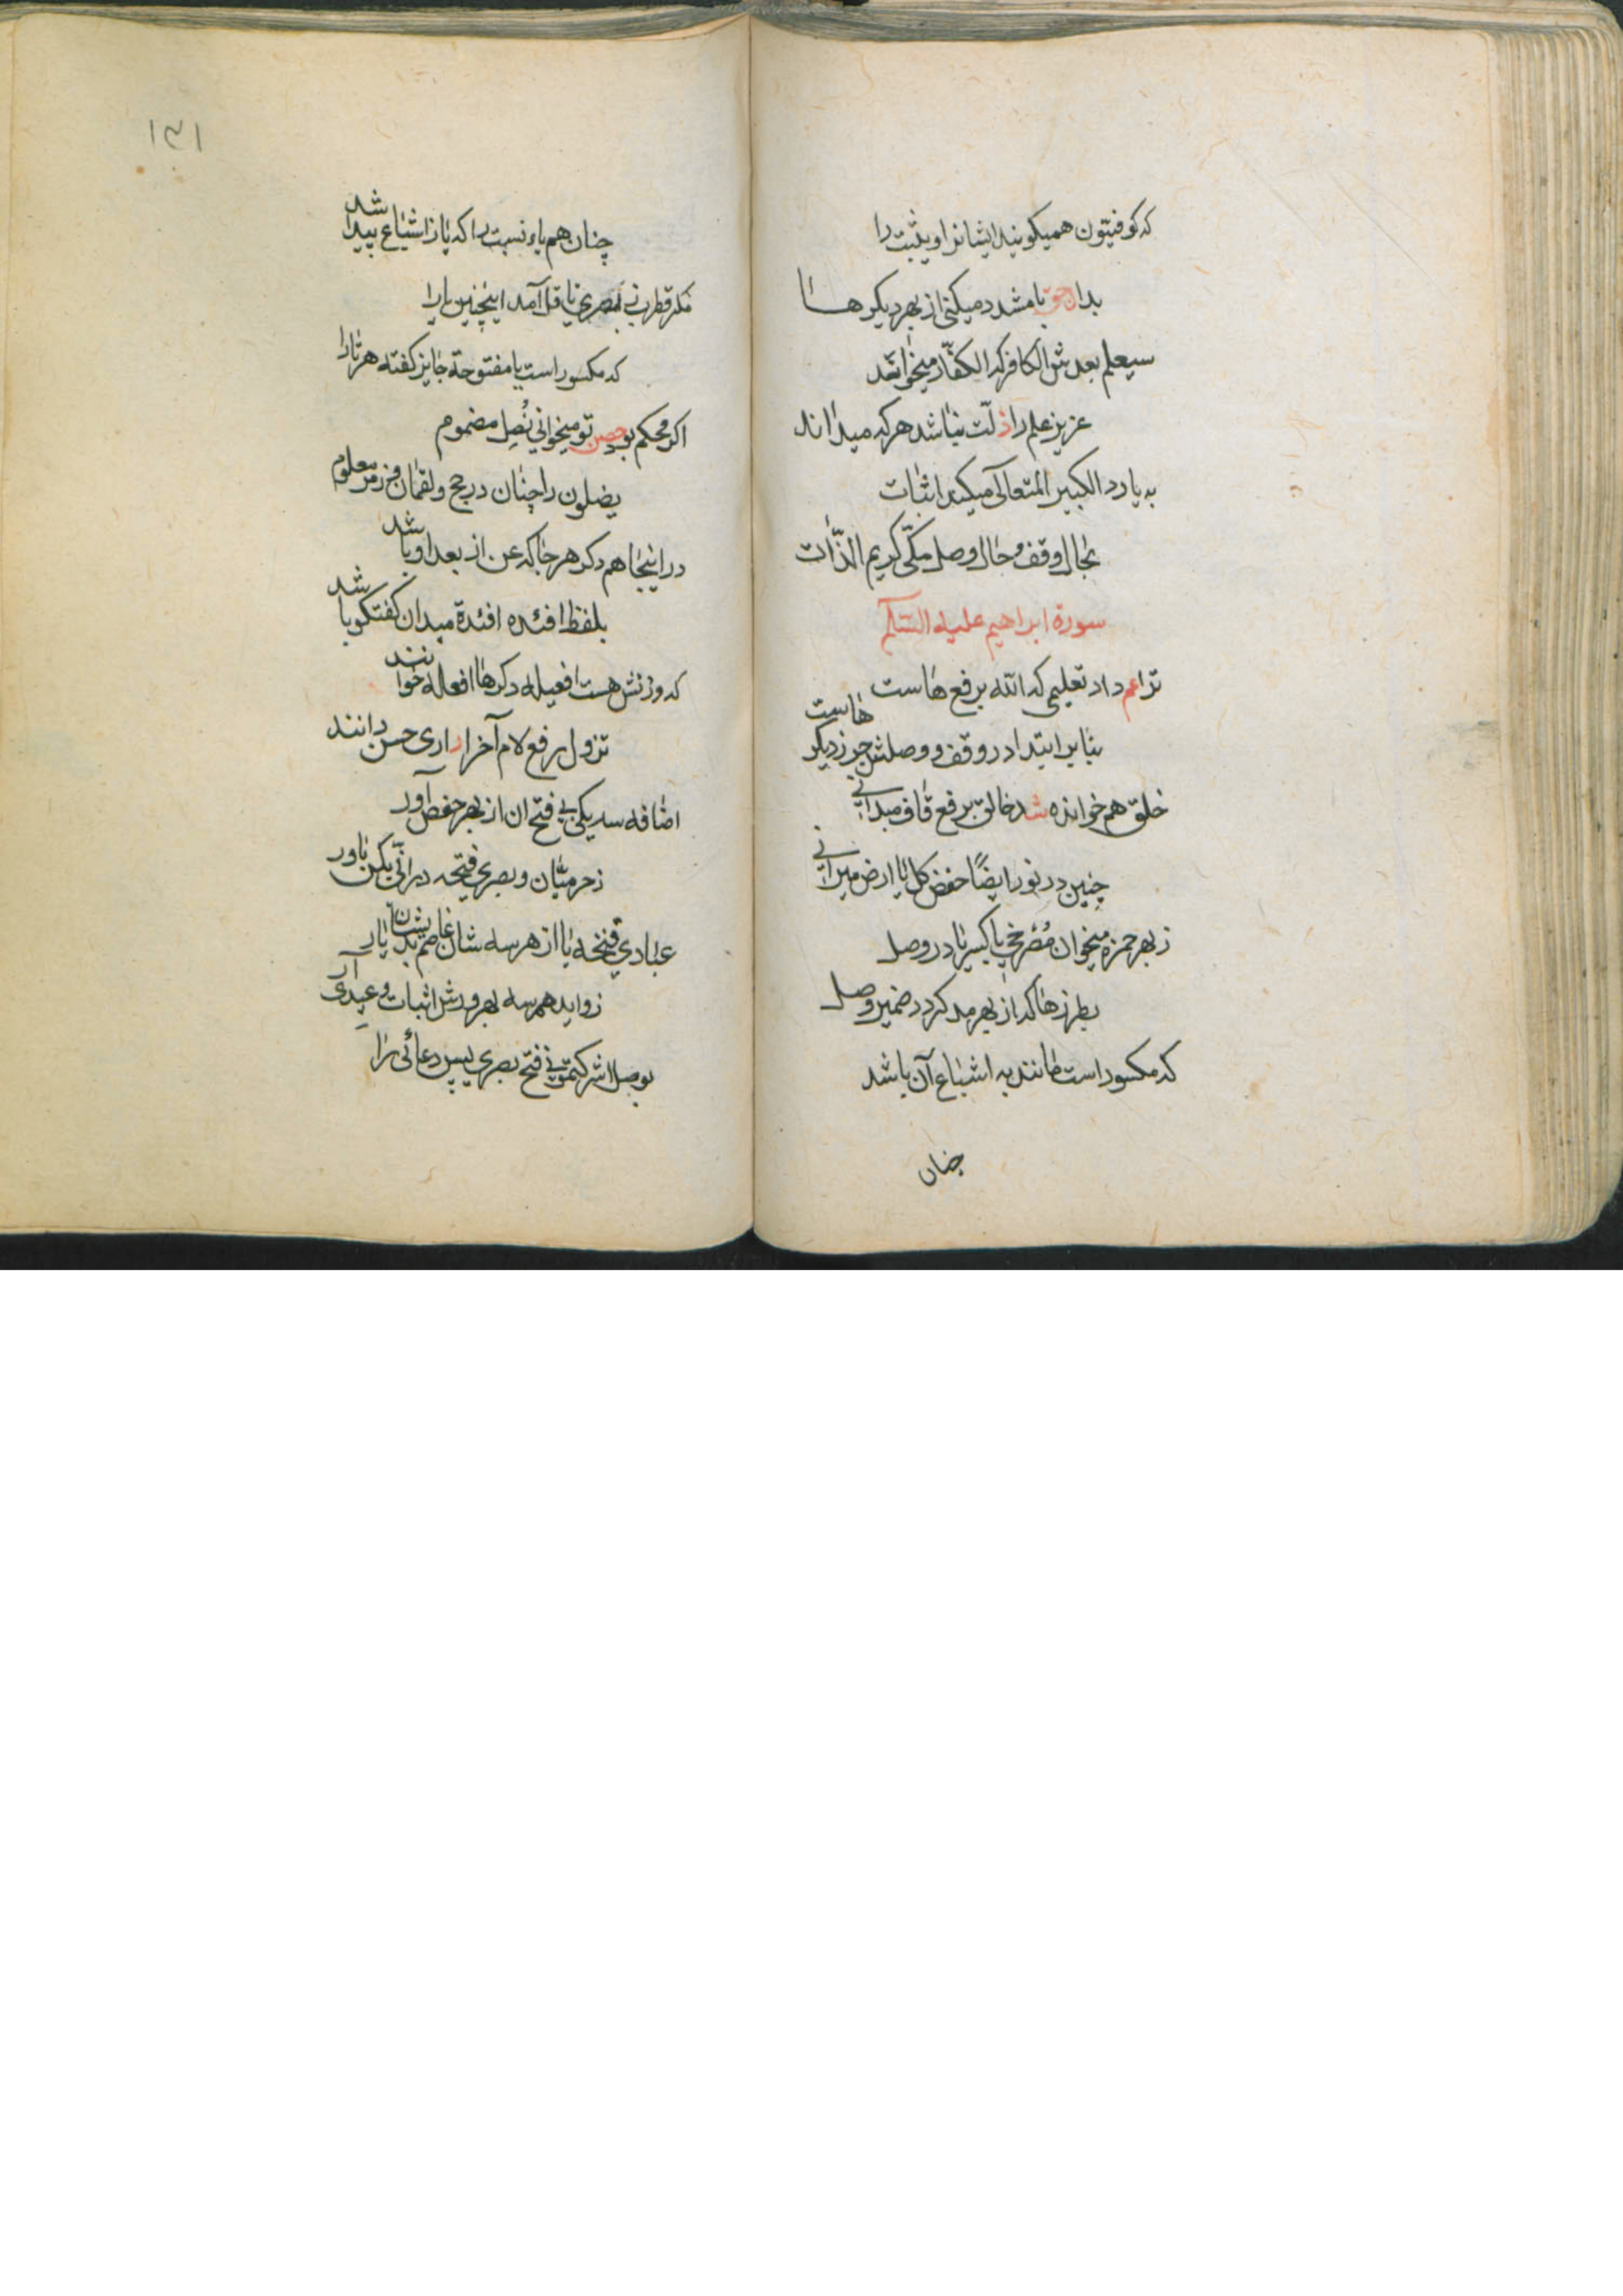 که کوفیّون همیکویند ایشانرا و یثبت را
بدان حق با مشدد میکنی از بهر دیکرها
سیعلم بعدش الکافر که الکفّار میخوانند
عزیز علم را ذلّت نباشد هر که میداند
به یا در الکبیر المتعالی میکند اثبات
بحال وقف و حال وصل مکّی کریم الذّات
سورة ابراهیم علیه السّلام
ترا عم داد تعلیمی که الله بر رفع هاست
بنا بر ابتدا در وقف و وصلش جر ز دیکر هاست
خلق هم خوانده شد خالق برفع قاف میدانی
چنین در نور ایضًا خفض کل با ارض میرانی
ز بهر حمزه میخوان مُصْرخیِّ با کسر یا در وصل
بطرز ها که از بهر مد کردد ضمیر وصل
که مکسور است مانند به اشباع آن باشد
چنان
۱۳۱
چنان هم یاء نسبت را که یا ز اشباع پیدا شد
مکر قطرب نی بصری ناقل آمد اینچنین یا را
که مکسور است یا مفتوحة جایز کفته هر تا را
اکر محکم بود حصن تو میخوانی نُصِل مضموم
یضلون را چنان در حج و لقمان و زمر معلوم
در اینجا هم دکر هر جا که عن از بعد او باشد
بلفظ افئده افئدة میدان کفتکو باشد
که وزنش هست افعیله دکرها افعاله خوانند
تزول بر رفع لام آخر ار داری حسن دانند
اضافه سه یکی لی فتح ان از بهر حفص آور
ز حرمیّان و بصری فتحه در انّی بکن باور
عبادی فتحه یا از هر سه شان عاصم بدیشان یار
زواید هم سه بهر ورش اثبات وعیدی آر
بوصل اشرکتمونی فتح بصری پس دعائی را